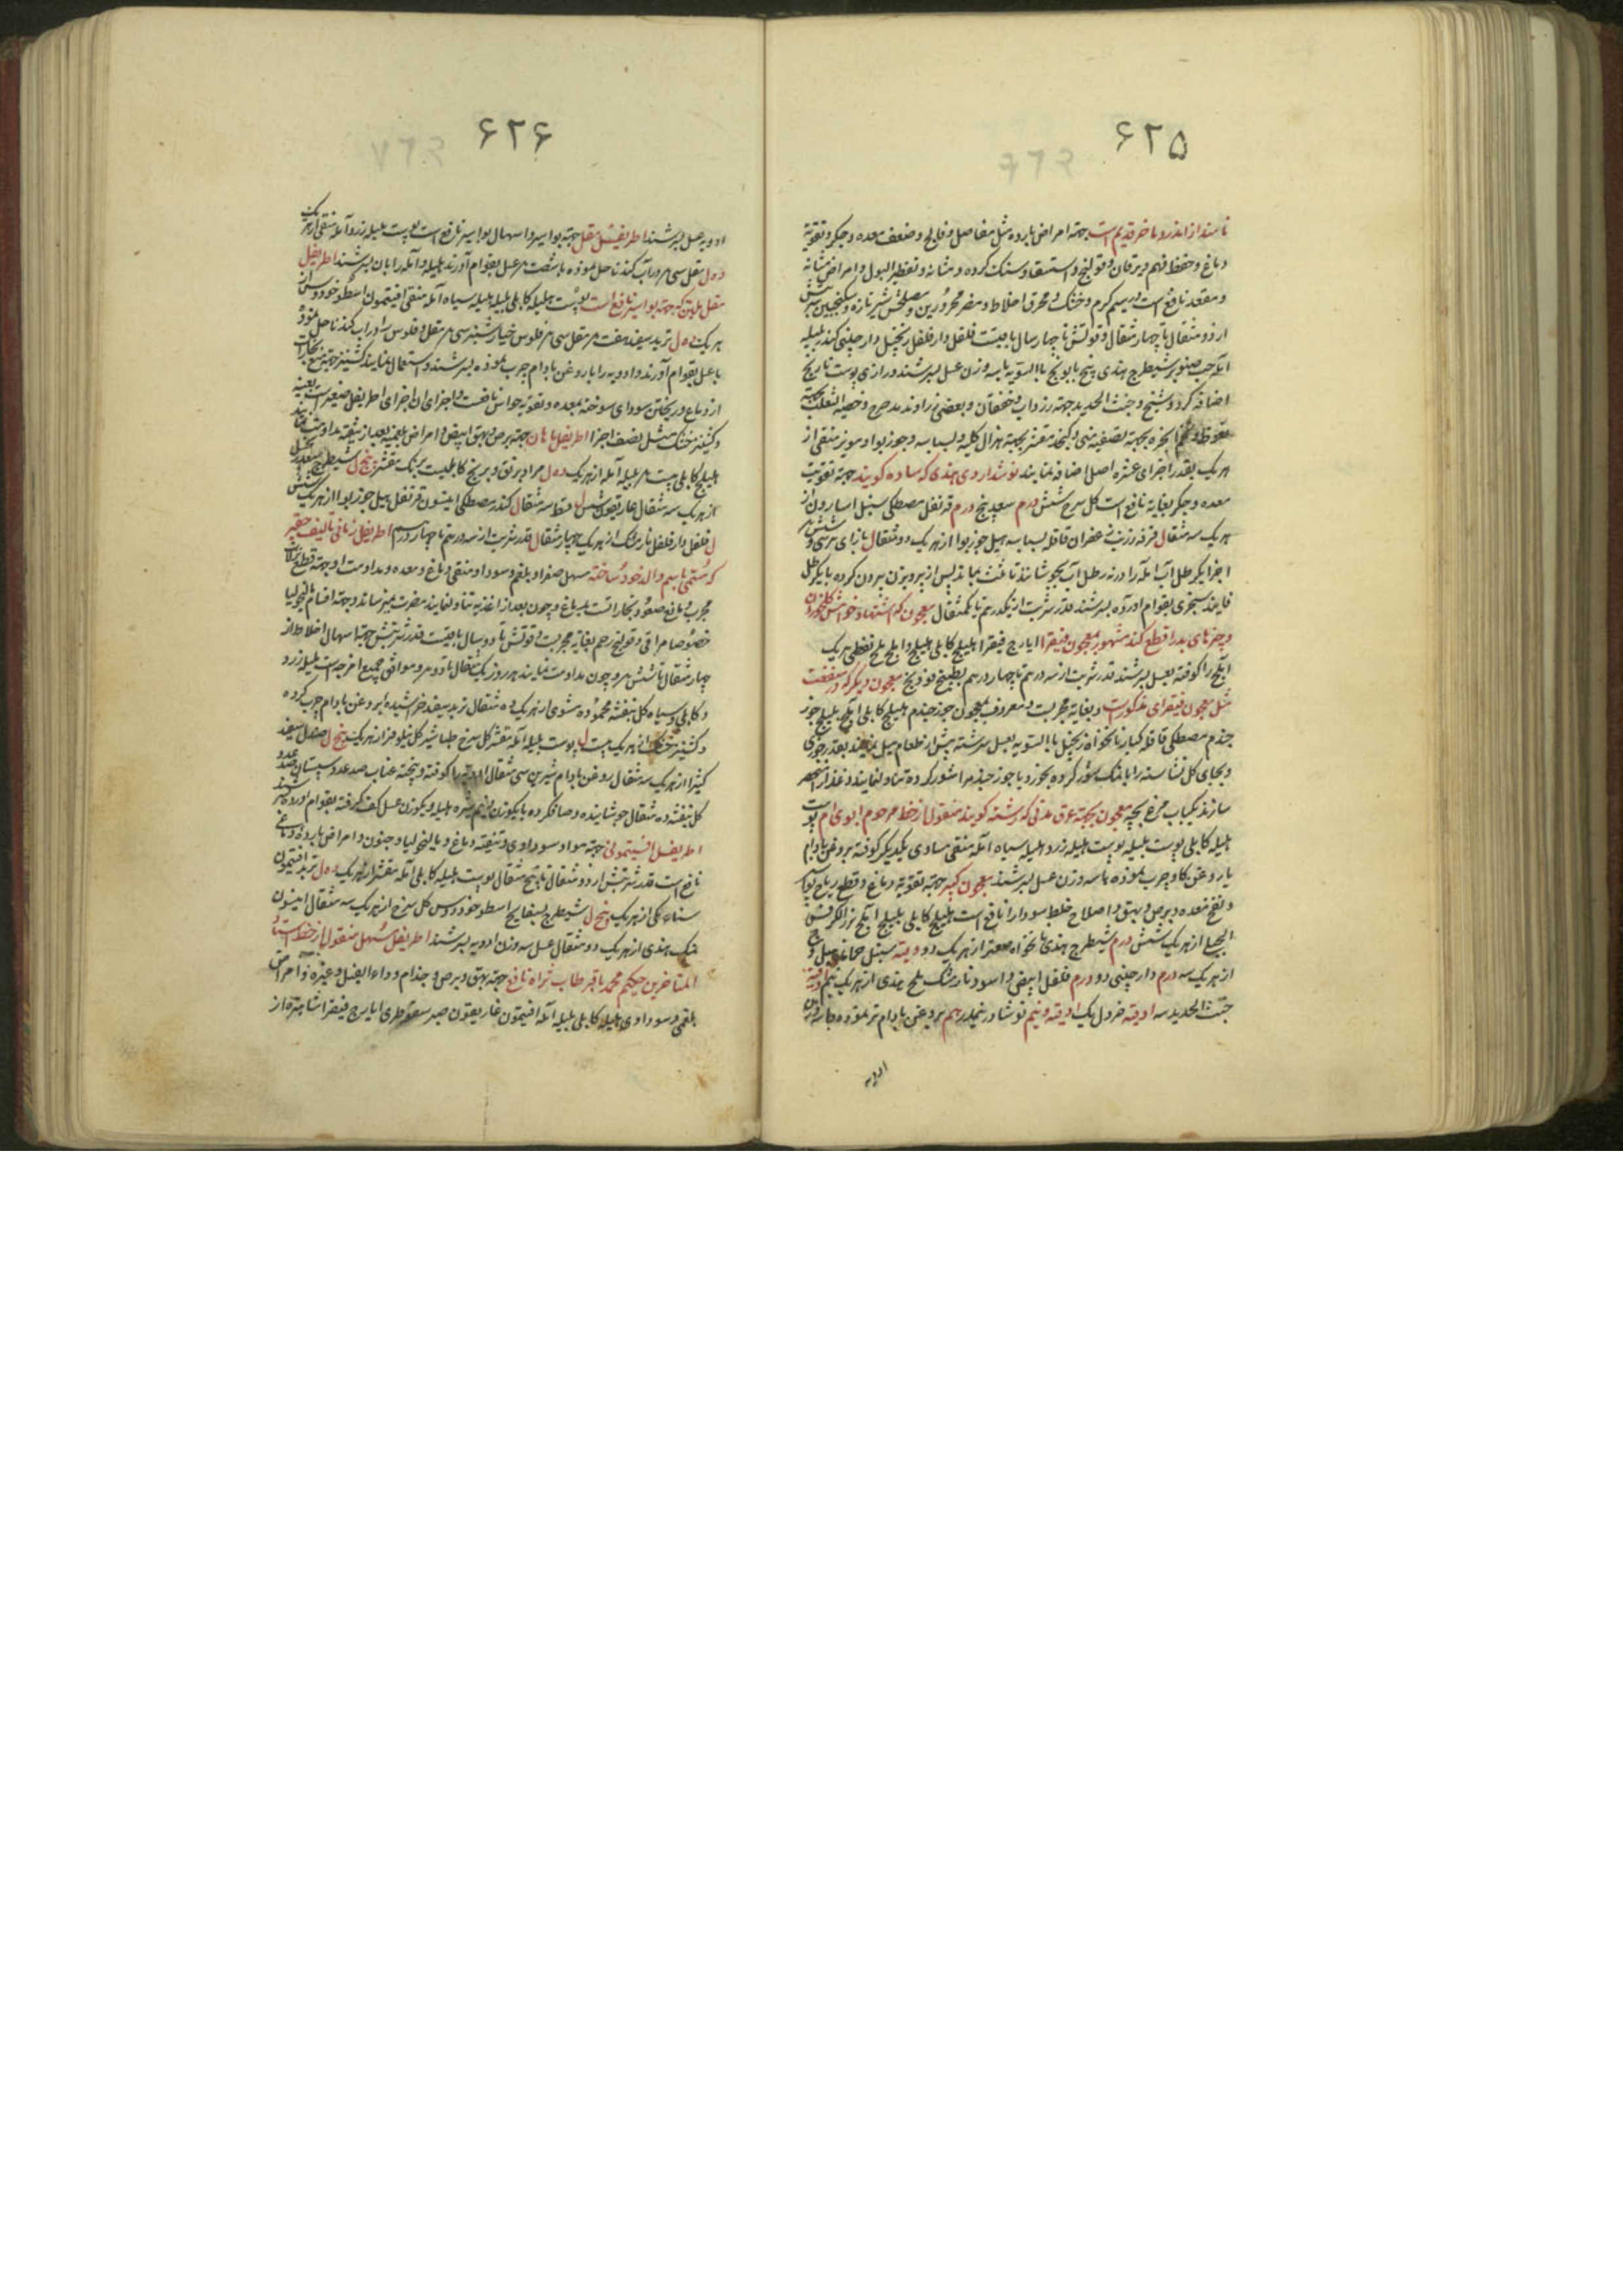 ۶۲۵
نامند از اندروماخر قدیم است جهته امراض بارده مثل مفاصل و فالج و ضعف معده و جکر و تقویة
دماغ و حفظ فهم و یرقان و قولنج و استسقا و سنک کرده و مثانه و تقطیر البول و امراض مثانه
و مقعد نافع است در سیم کرم و خشک و محرق اخلاط و مضر محرورین و مصلحش شیر تازه و سکنجبین
از دو مثقال تا چهار مثقال و قوتش تا چهار سال باقیست فلفل دار فلفل زنجبیل دارچینی کندر بلیله
آمله حب صنوبر شیطرج هندی بیخ بابونج باالسویه با سه وزن عسل بسرشند و رازی پوست نارنج
اضافه کرده و شیخ و خبث الحدید جهته رزداب و خفقان و بعضی زراوند مدحرج و خصیه الثعلب جهته
نعوظ و تخم انجره بجهته تصفیه منی و کنجد مقشر بجهته هزال کلیه و بسباسه و جوزبوا و مویز منقی از
هریک بقدر اجزای عشره اصل اضافه نمایند نوشداروی هندی که ساده کویند جهته تقویت
معده و جکر بغایة نافع است کل سرخ شش درم سعد پنج درم قرنفل مصطکی سنبل اسارون از
هریک سه مثقال قرفه زرنب زعفران قاقله بسباسه هیل جوزبوا از هریک دو مثقال بازای هر سی و شش
اجزا یکرطل آب آمله را در نه رطل آب بجوشانند تا ثلث بماند پس از پرویزن بیرون کرده با یکرطل
فانید سنجری بقوام آورده بسرشند قدر شربت از یکدرهم تا یکمثقال معجون که اشتهاء و خواهش کل خوردن
و چیزهای بد را قطع کند مشهور بمعجون فیقرا ایارج فیقرا هلیلج کابلی بلیلج و املج ملح نفطی هریک
املج را کوفته بعسل بسرشند قدر شربت از سه درهم تا چهار درهم بطبیخ فوذنج معجون دیکر که در منفعت
مثل معجون فیقرای مذکور است و بغایة مجربست و معروف بمعجون جوز جندم هلیلج کابلی املج بلیلج جوز
جندم مصطکی قاقله کبار نانخواه زنجبیل باالسویه بعسل سرشته پیش از طعام میل نمایند بقدر جوزی
و بجای کل نشاسته را با نمک شور کرده بخورد یا جوز جندم را شور کرده تناول نمایند و غذا را منحصر
سازند بکباب مرغ بچه معجون بجهته عرق مدنی که رشته کویند منقول از خط مرحوم ابوی ام پوست
هلیله کابلی پوست بلیله پوست هلیله زرد هلیله سیاه آمله منقی مساوی یکدیکر کوفته بروغن بادام
یا روغن کاو چرب نموده با سه وزن عسل بسرشند معجون کبیر جهته تقویة دماغ و قطع ریاح بواسیر
و نفخ معده و برص و بهق و اصلاح خلط سودا را نافع است هلیلج کابلی بلیلج املج بزر الکرفس
الجبلی از هریک شش درم شیطرج هندی نانخواه صعتر از هریک دو اوقیه سنبل حماما هیل و ج
از هریک سه درم دارچینی دو درم فلفل ابیض و اسود نارمشک ملح هندی از هریک نیم اوقیه
خبث الحدید سه اوقیه خردل یک اوقیه و نیم نوشادر نیمدرهم بروغن بادام تر نموده با سه وزن
ادویه
۶۲۶
ادویه عسل بسرشند اطریفل مقل جهته بواسیر و اسهال بواسیر نافع است پوست هلیله زرد آمله منقی از هریک
ده ل مقل سی م در آب کند ناحل نموده با شصت م عسل بقوام آورند هلیله و آمله را بان بسرشند اطریفل
مقل ملین که جهته بواسیر نافع است پوست هلیله کابلی بلیله هلیله سیاه آمله منقی افتیمون اسطوخودوس از
هریک ده ل تربد سفید هفت م مقل سی م فلوس خیارشنبر سی م مقل و فلوس را در آب کند ناحل نموده
با عسل بقوام آورند و ادویه را با روغن بادام چرب نموده بسرشند و استعمال نمایند کشنیز جهته منع بخارات
از دماغ و ریختن سودای سوخته بمعده و تقویه حواس نافعست و اجزای او اجزای اطریفل صغیر است بعینه
و کشنیز خشک مثل نصف اجزا اطریفل هان جهته برص و بهق ابیض و امراض بلغمیه بعد از تنقیه مداومت نمایند
هلیلج کابلی بیست م بلیله آمله از هریک ده ل مرادر ونق و برنج کابلیست برنک مقشر پنج ل شیطرج سعد زنجبیل
از هریک سه مثقال غاریقون شش ل قسط سه مثقال کندر مصطکی انیسون قرنفل هیل جوزبوا از هریک شش
ل فلفل دار فلفل نارمشک از هریک چهار مثقال قدر شربت از سه درهم تا چهار درهم اطریفل زمانی تالیف حقیر
که مسمی باسم والد خود ساخته مسهل صفرا و بلغم و سودا و منقی دماغ و معده و مداومت او جهته قطع نزلات
مجرب و مانع صعود بخارات بدماغ و چون بعد از اغذیه تناول نمایند مضرت نمیرساند و جهته اقسام مالیخولیا
خصوصا مراقی و قولنج رحم بغایة مجربست و قوتش تا دو سال باقیست قدر شربتش جهته اسهال اخلاط از
چهار مثقال تا شش م و چون مداومت نمایند هر روز یکمثقال تا دو م و موافق جمیع امزجه است هلیله زرد
و کابلی و سیاه کل بنفشه محموده مشوی از هریک ده مثقال تربد سفید خراشیده بروغن بادام چرب کرده
و کشنیز خشک از هریک بیست ل پوست بلیله آمله مقشر کل سرخ طباشیر کل نیلوفر از هریک پنج ل صندل سفید
کتیرا از هریک سه مثقال روغن بادام شیرین سی مثقال ادویه را کوفته و بیخته عناب صد عدد سپستان صد عدد
کل بنفشه ده مثقال جوشانیده و صافکرده با یکوزن و نیم شیره هلیله و یکوزن عسل کف کرفته بقوام آورده بسرشند
اطریفل افتیمونی جهته مواد سوداوی و تنقیه دماغ و مالیخولیا و جنون و امراض بارده دماغی
نافع است قدر شربتش از دو مثقال تا پنج مثقال پوست هلیله کابلی آمله مقشر از هریک ده ل تربد افتیمون
سناء مکی از هریک پنج ل شیطرج بسفایج اسطوخودوس کل سرخ از هریک سه مثقال انیسون
نمک هندی از هریک دو مثقال عسل سه وزن ادویه بسرشند اطریفل مسهل منقول از خط استاد
المتاخرین حکیم محمد باقر طاب ثراه نافع جهته بهق و برص و جذام و داء الفیل و غیره و امراض
بلغمی و سوداوی هلیله کابلی بلیله آمله افتیمون غاریقون صبر سقوطری ایارج فیقرا شاهتره از